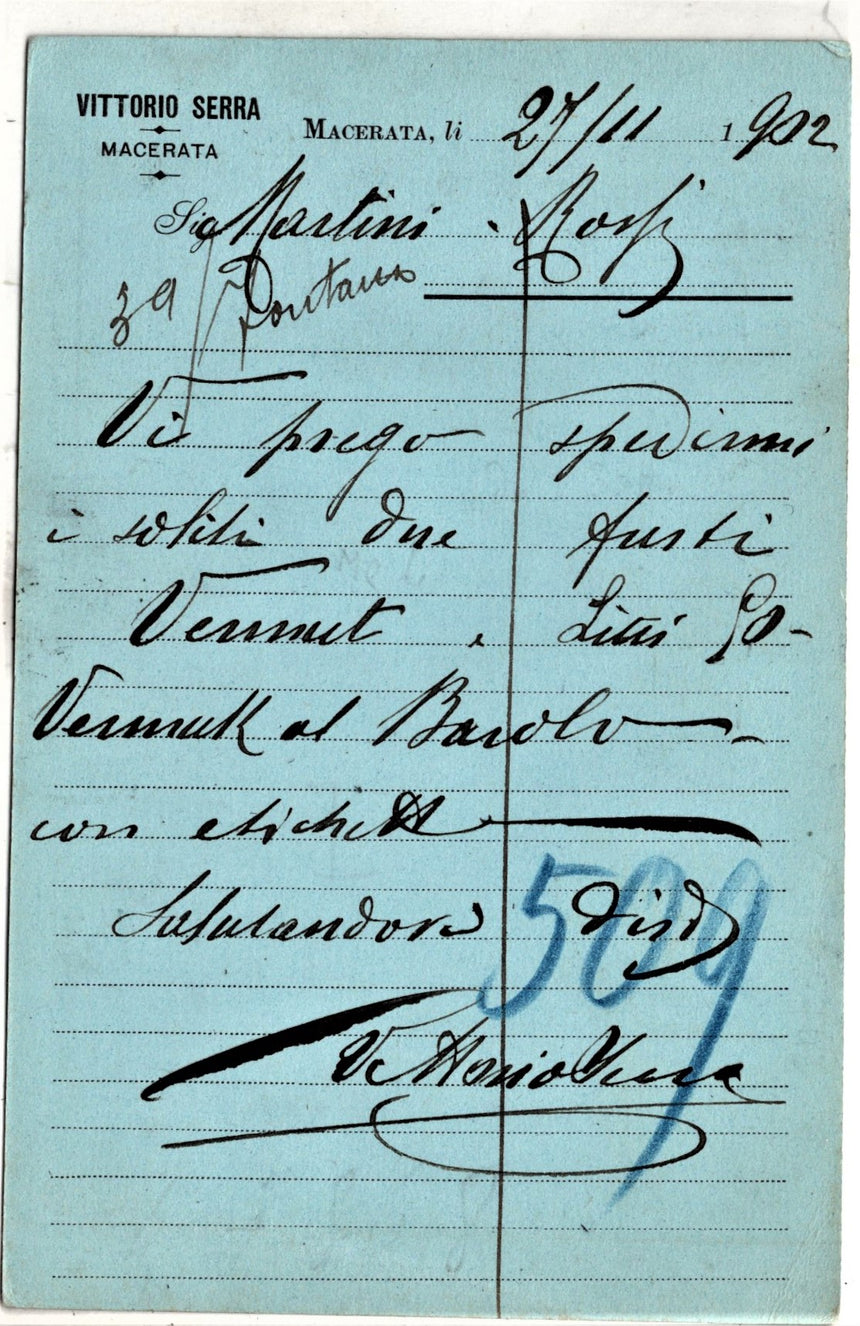 VITTORIO SERRA
MACERATA
MACERATA, li 27/11 1902
Sig Martini - Rossi
Vi prego spedirmi
i soliti due fusti
Vermut e Litri 50-
Vermutk al Barolo
con etichett
Salutandovi
Vittorio Serra
509